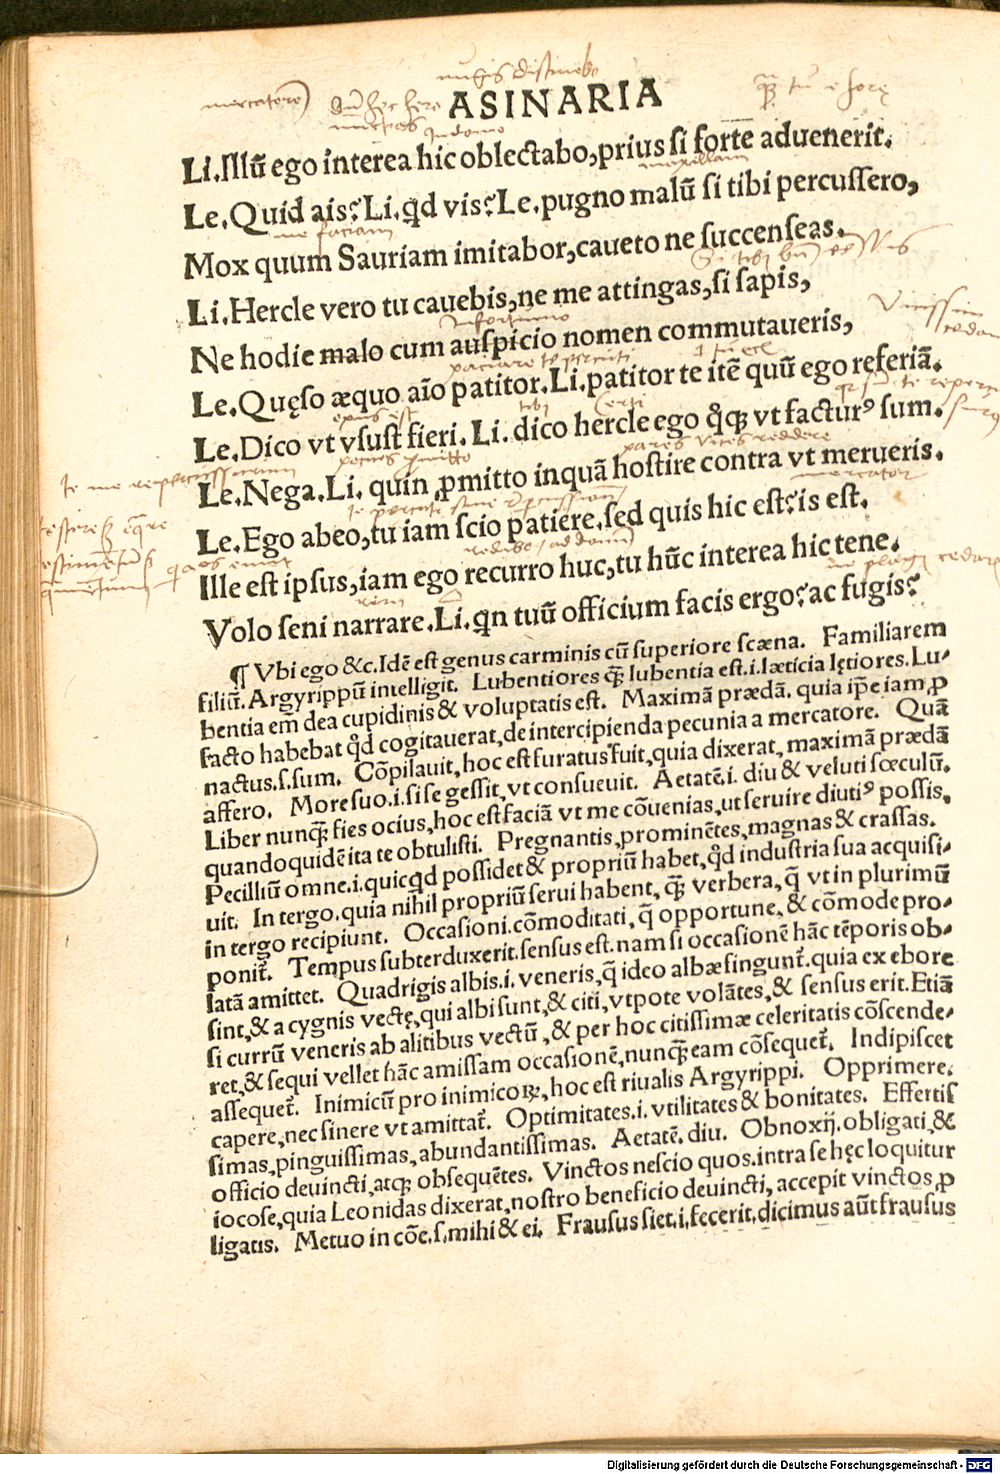 nugis distinebo
mercatorem
ASINARIA
Li.Illū ego interea hic oblectabo,prius si forte aduenerit.
Le.Quid ais?Li.qd vis?Le.pugno malū si tibi percussero,
me faciam
Mox quum Sauriam imitabor,caueto ne succenseas.
Li.Hercle vero tu cauebis,ne me attingas,si sapis,
Infortunio
Ne hodie malo cum auspicio nomen commutaueris,
Le.Quęso æquo aīo patitor.Li.patitor te itē quū ego referiā.
opus est
tibi
Le.Dico vt vsust fieri.Li.dico hercle ego qq̄ꝫ vt facturꝰ sum.
pares vices reddere
Le.Nega.Li.quin ꝓmitto inquā hostire contra vt merueris.
mercator
Le.Ego abeo,tu iam scio patiere.sed quis hic est?is est.
Ille est ipsus,iam ego recurro huc,tu hūc interea hic tene.
rem
Volo seni narrare.Li.qn tuū officium facis ergo?ac fugis?
¶ Vbi ego &c.Idē est genus carminis cū superiore scæna. Familiarem
filiū.Argyrippū intelligit. Lubentiores q̄ꝫ lubentia est.i.læticia lętiores.Lu-
bentia em̄ dea cupidinis & voluptatis est. Maximā prædā.quia ip̄e iam,ꝓ
facto habebat qd cogitauerat,de intercipienda pecunia a mercatore. Quā
nactus.s.sum. Cōpilauit,hoc est furatus fuit,quia dixerat,maximā prædā
affero. More suo.i.si se gessit,vt consueuit. Aetatē.i.diu & veluti sœculū.
Liber nunq̄ꝫ fies ocius,hoc est faciā vt me cōuenias,ut seruire diutiꝰ possis,
quandoquidē ita te obtulisti. Pregnantis,prominētes,magnas & crassas.
Pecilliū omne.i.quicqd possidet & propriū habet,qd industria sua acquisi-
uit. In tergo.quia nihil propriū serui habent,q̄ꝫ verbera,q̄ vt in plurimū
in tergo recipiunt. Occasioni.cōmoditati,q̄ opportune,& cōmode pro-
ponit̄. Tempus subterduxerit.sensus est.nam si occasionē hāc tēporis ob-
latā amittet. Quadrigis albis.i.veneris,q̄ ideo albæ singunt̄.quia ex ebore
sint,& a cygnis vectę,qui albi sunt,& citi,vtpote volātes,& sensus erit.Etiā
si currū veneris ab alitibus vectū,& per hoc citissimæ celeritatis cōscende-
ret,& sequi vellet hāc amissam occasionē,nunq̄ꝫ eam cōsequet̄. Indipiscet
assequet̄. Inimicū pro inimicoꝝ,hoc est riualis Argyrippi. Opprimere.
capere,nec sinere vt amittat̄. Optimitates.i.vtilitates & bonitates. Effertis
simas,pinguissimas,abundantissimas. Aetatē.diu. Obnoxij.obligati,&
officio deuincti,atqꝫ obsequētes. Vinctos nescio quos.intra se hęc loquitur
iocose,quia Leonidas dixerat,nostro beneficio deuincti,accepit vinctos,ꝓ
ligatis. Metuo in cōe.s.mihi & ei. Frausus siet.i.fecerit.dicimus aūt frausus
Digitalisierung gefördert durch die Deutsche Forschungsgemeinschaft - DFG